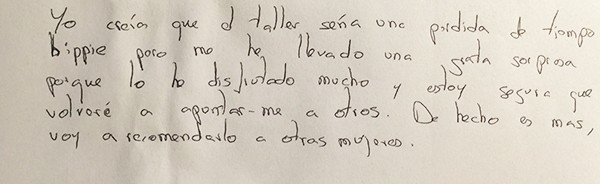 Yo creía que el taller sería una pérdida de tiempo
hippie pero me he llevado una grata sorpresa
porque lo he disfrutado mucho y estoy segura que
volveré a apuntar-me a otros. De hecho es mas,
voy a recomendarlo a otras mujeres.